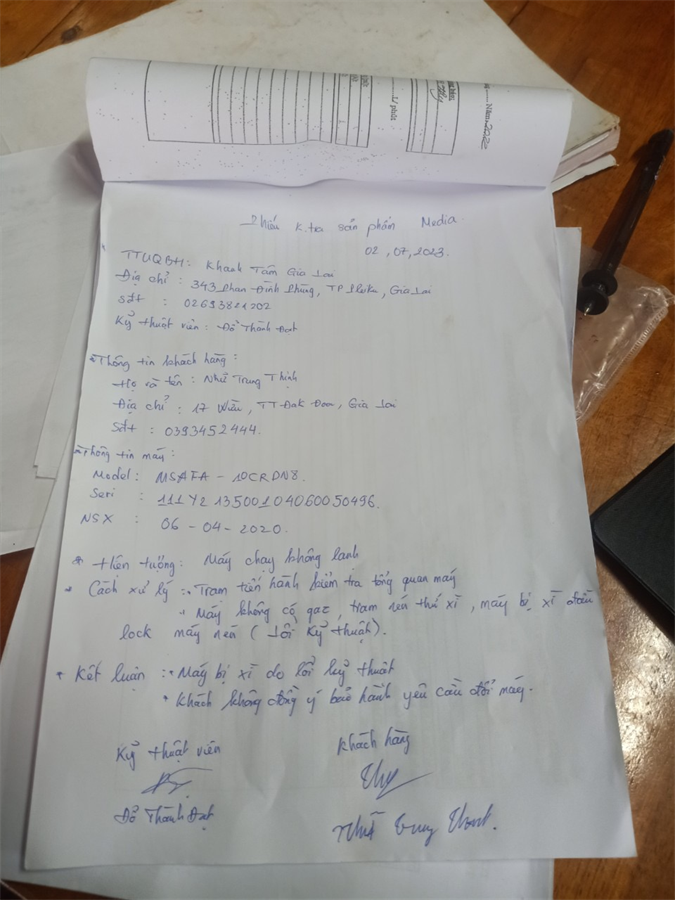 Năm 2020
Phiếu k.tra sản phẩm Media
02, 07, 2023.
TTUQBH: Khanh Tâm Gia Lai
Địa chỉ: 343 Phan Đình Phùng, TP Pleiku, Gia Lai
Sđt : 02693821202
Kỹ thuật viên: Đỗ Thành Đạt
* Thông tin khách hàng:
Họ và tên : Như Trung Thịnh
Địa chỉ : 17 Wừu, TT Đak Đoa, Gia Lai
Sđt : 0393452444.
* Thông tin máy:
Model: MSAFA - 10CRDN8.
Seri : 111Y2 135001 04060050496.
NSX : 06 - 04 - 2020.
* Hiện tượng: Máy chạy không lạnh
* Cách xử lý :• Trạm tiến hành kiểm tra tổng quan máy
• Máy không có gaz, trạm nén thử xì, máy bị xì đầu
lock máy nén (Lỗi Kỹ thuật).
* Kết luận :• Máy bị xì do lỗi kỹ thuật
• Khách không đồng ý bảo hành yêu cầu đổi máy.
Kỹ thuật viên
Khách hàng
Đỗ Thành Đạt
Như Trung Thịnh.